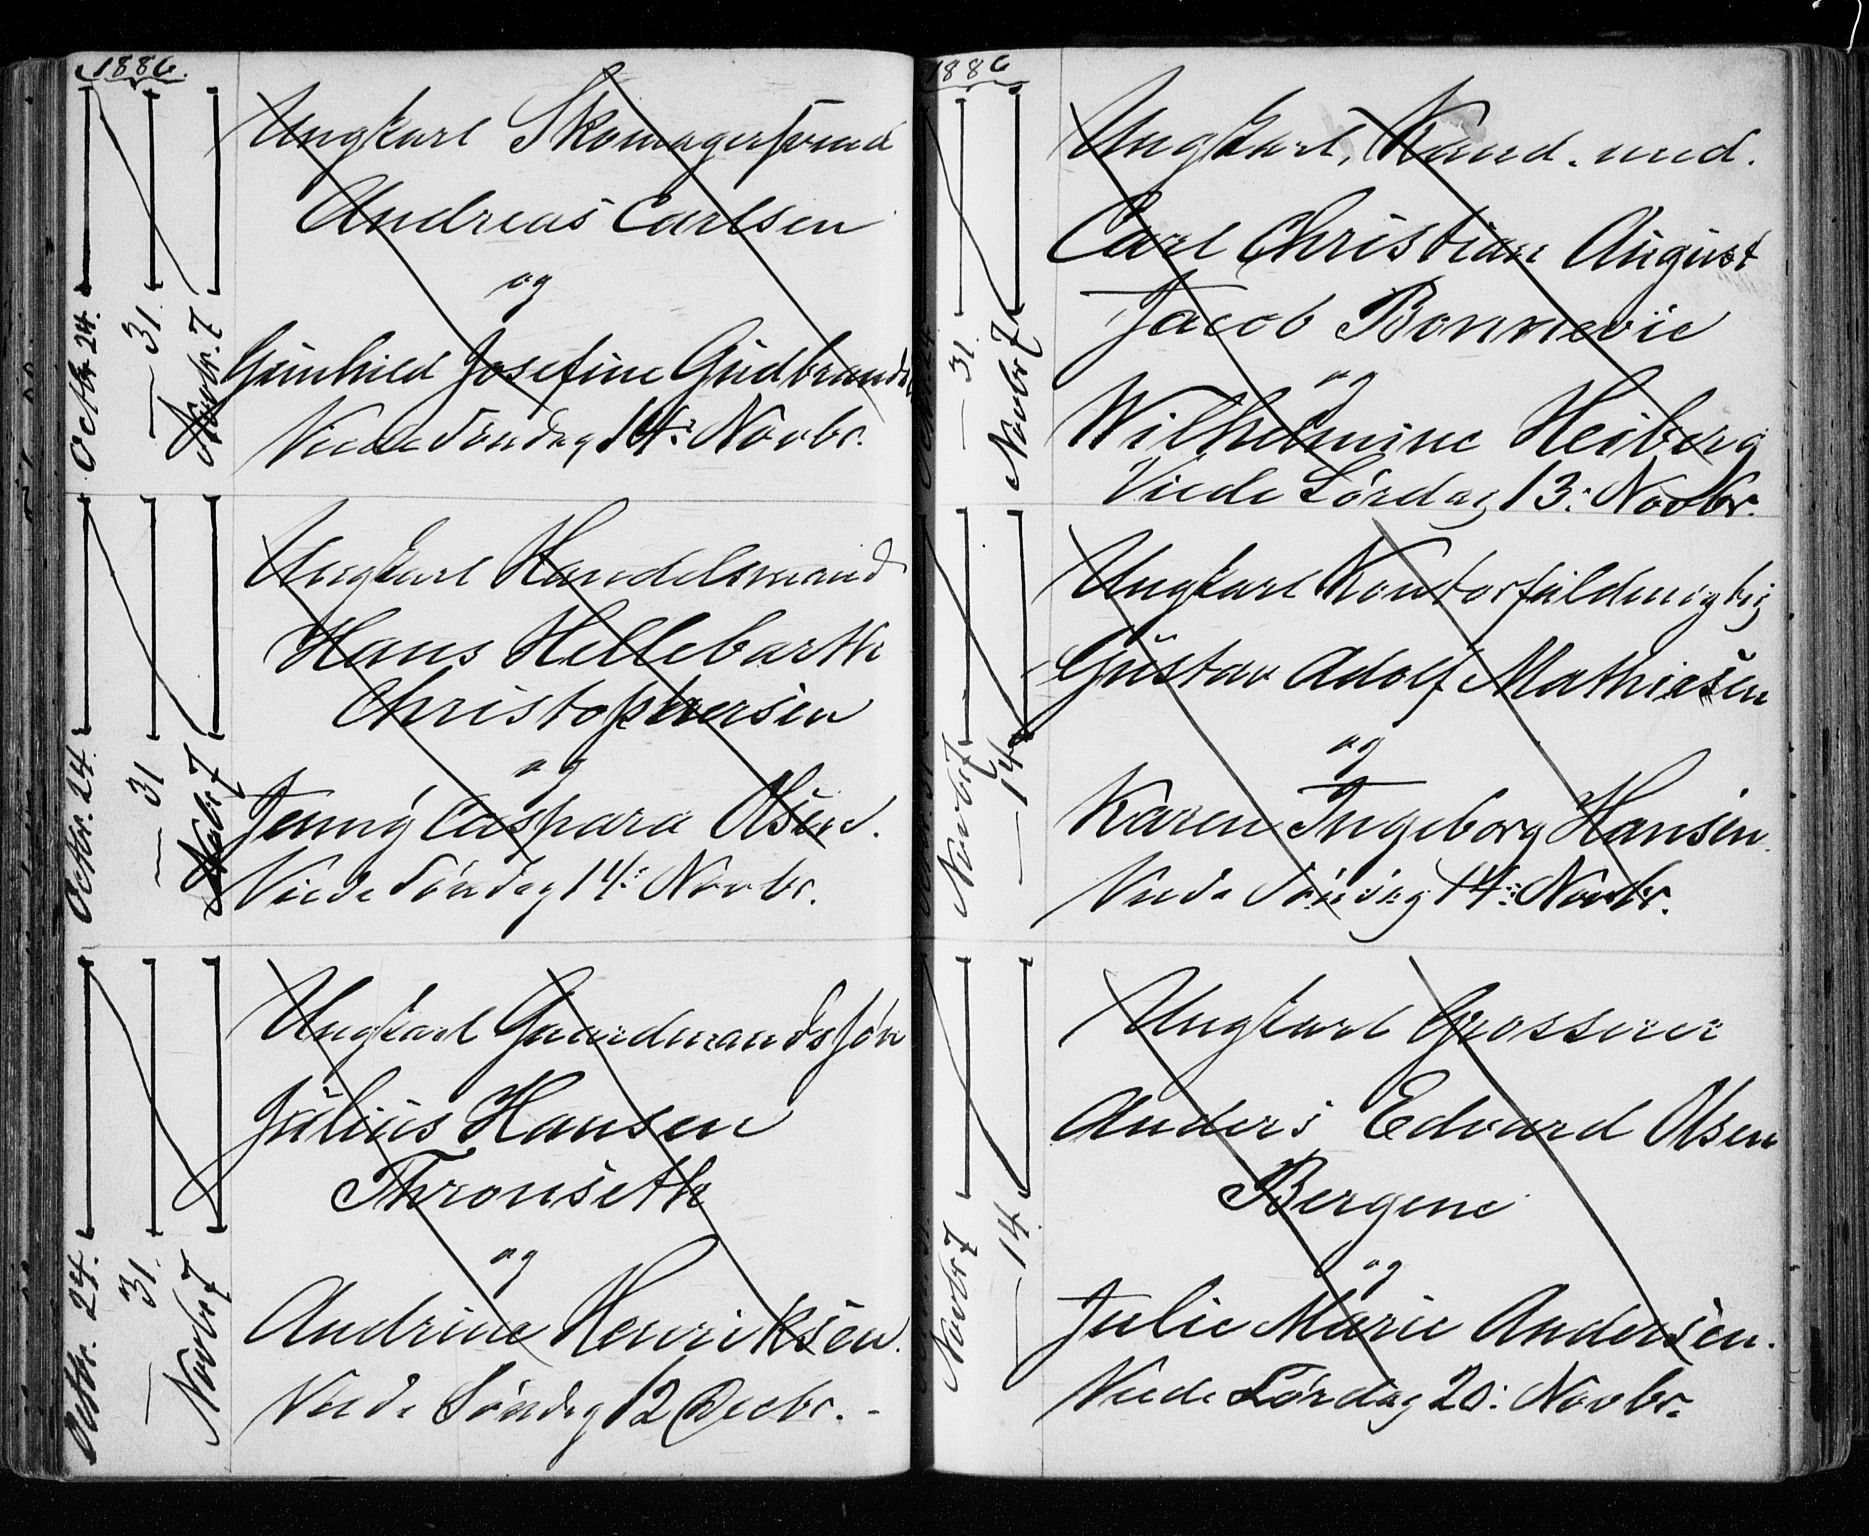 1886.
Octbr. 24.
— 31.
Novbr. 7
Ungkarl Skomagersvend
Andreas Carlsen
og
Gunhild Josefine Gudbrands
Viede Søndag 14: Novbr.
Octbr. 24.
— 31
Novbr 7
Ungkarl Handelsmand
Hans Hellebarth
Christophersen
og
Jenny Caspara Olsen.
Viede Søndag 14: Novbr.
Octbr. 24.
— 31.
Novbr 7
Ungkarl Gaardmandssøn
Julius Hansen
Thronseth
og
Andrine Henriksen.
Viede Søndag 12 Decbr. -
1886
— 31.
Novbr 7
Ungkarl, Kand. med.
Carl Christian August
Jacob Bonnevie
og
Wilhelmine Heiberg
Viede Lørdag 13: Novbr.
Novbr 7
— 14
Ungkarl Kontorfuldmægtig
Gustav Adolf Mathiesen
og
Karen Ingeborg Hansen.
Viede Søndag 14: Novbr.
Novbr 7
— 14.
Ungkarl Grosserer
Anders Edvard Olsen
Bergene
og
Julie Marie Andersen.
Viede Lørdag 20: Novbr.